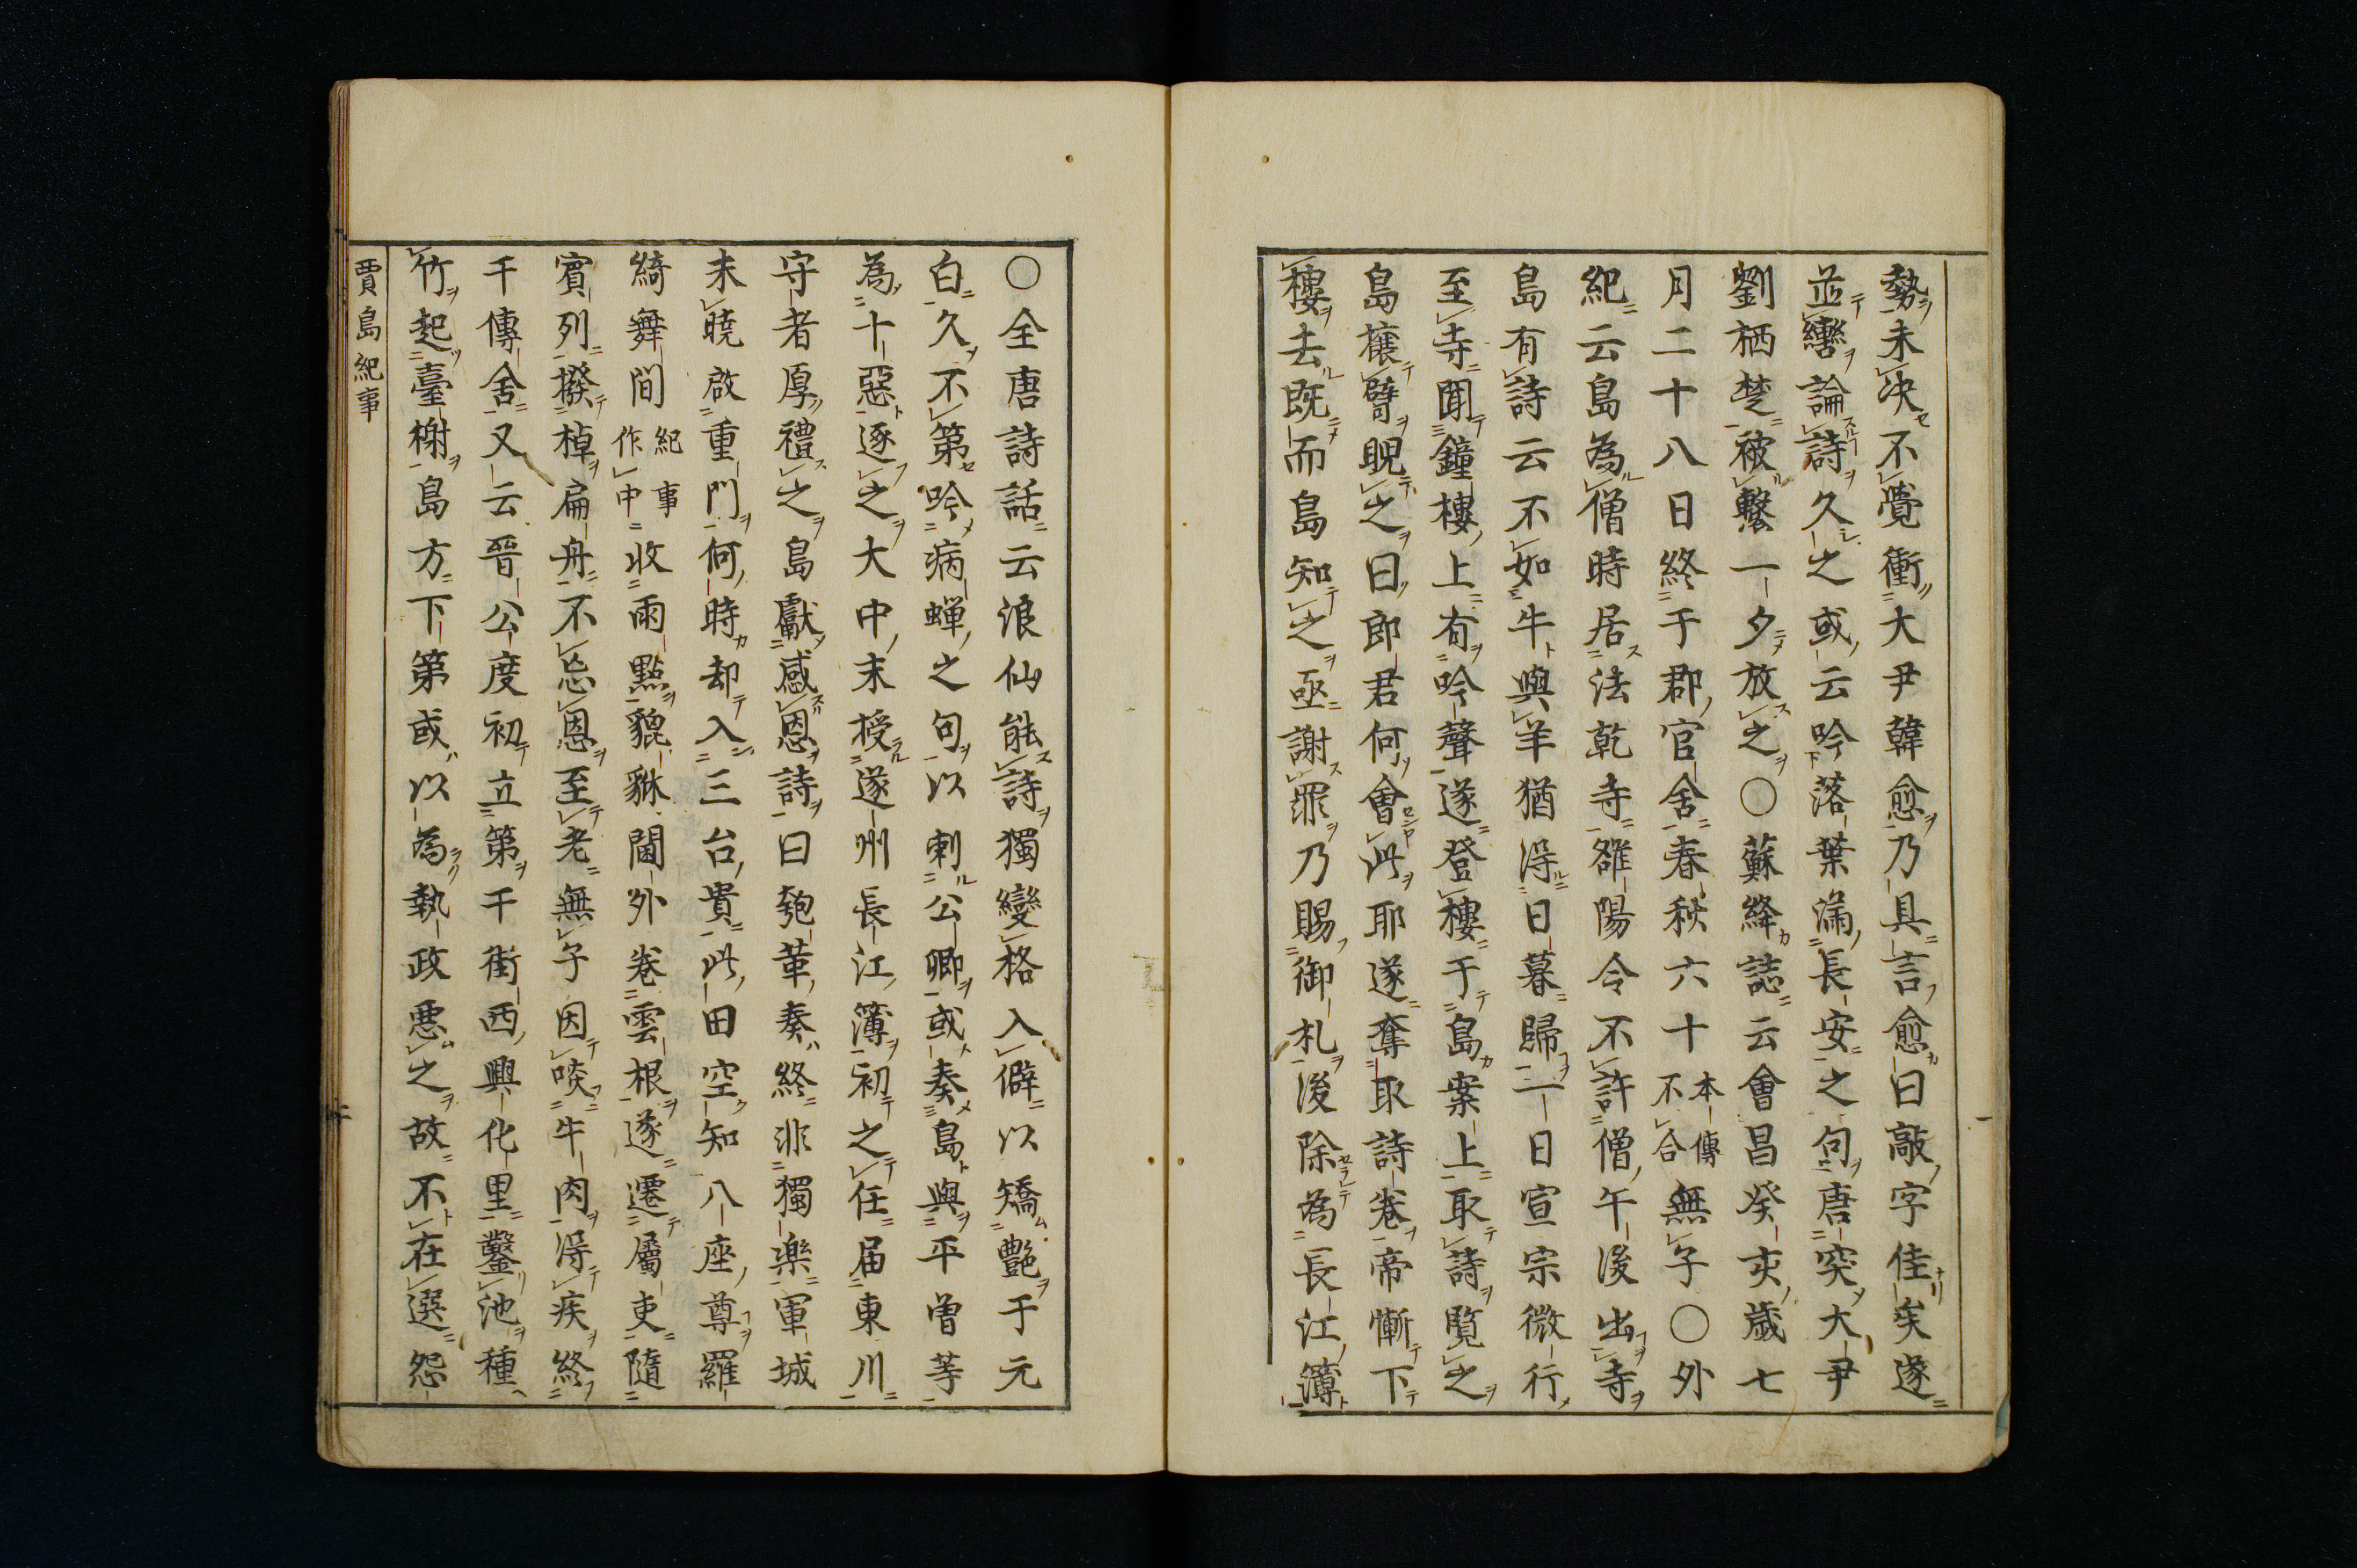 勢未決不覺衝大尹韓愈乃具言愈曰敲字佳矣遂
並轡論詩久之或云吟落葉滿長安之句唐突大尹
劉栖楚被繫一夕放之〇蘇絳誌云會昌癸亥歲七
月二十八日終于郡官舍春秋六十本傳不合無子〇外
紀云島為僧時居法乾寺雒陽令不許僧午後出寺
島有詩云不如牛與羊猶得日暮歸一日宣宗微行
至寺聞鐘樓上有吟聲遂登樓于島案上取詩覽之
島攘臂睨之曰郎君何會此耶遂奪取詩卷帝慚下
樓去既而島知之亟謝罪乃賜御札後除為長江簿
〇全唐詩話云浪仙能詩獨變格入僻以矯艷于元
白久不第吟病蟬之句以刺公卿或奏島與平曽等
為十惡逐之大中末授遂州長江簿初之任届東川
守者厚禮之島獻感恩詩曰匏革奏終非獨楽軍城
未曉啟重門何時却入三台貴此田空知八座尊羅
綺舞間紀事作中收雨點貔貅閫外卷雲根遂遷屬吏隨
賓列撥棹扁舟不忘恩至老無子因啖牛肉得疾終
千傳舍又云晉公度初立第千街西興化里鑿池種
竹起臺榭島方下第或以為執政惡之故不在選怨
賈島紀事